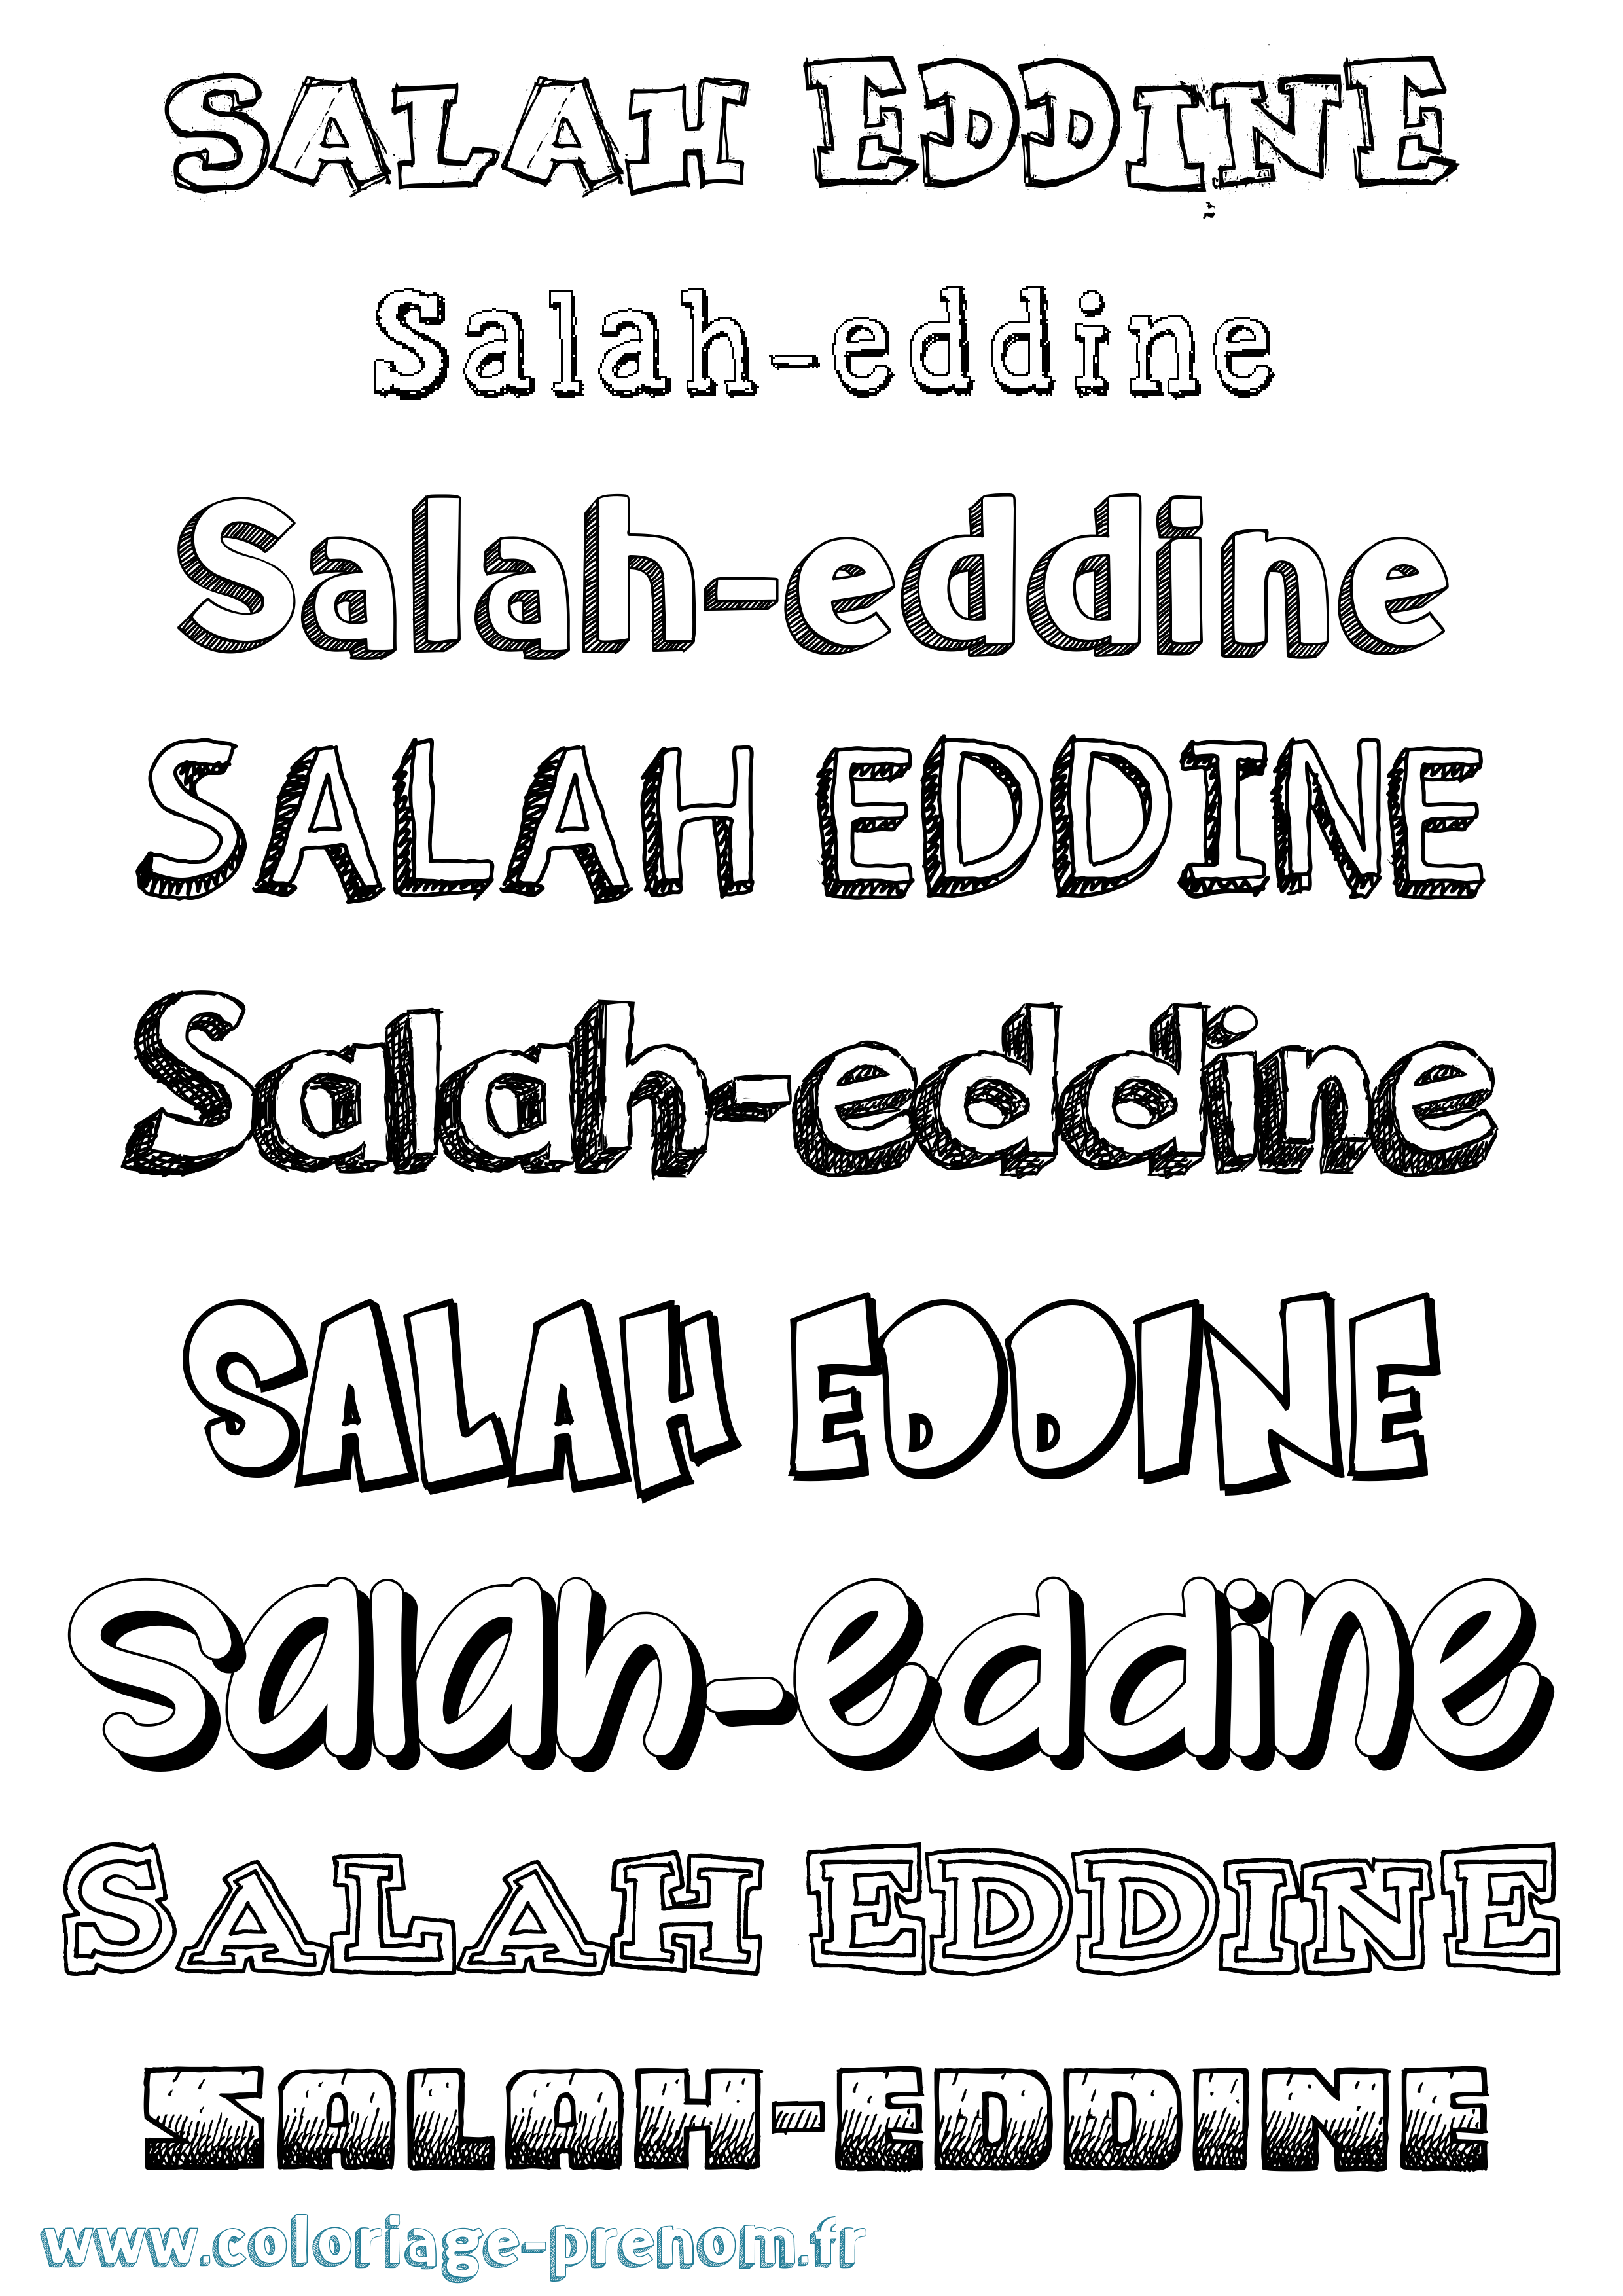 SALAH EDDINE
Salah-eddine
Salah-eddine
SALAH EDDINE
Salah-eddine
SALAH EDDINE
Salah-eddine
SALAH EDDINE
SALAH-EDDINE
www.coloriage-prenom.fr